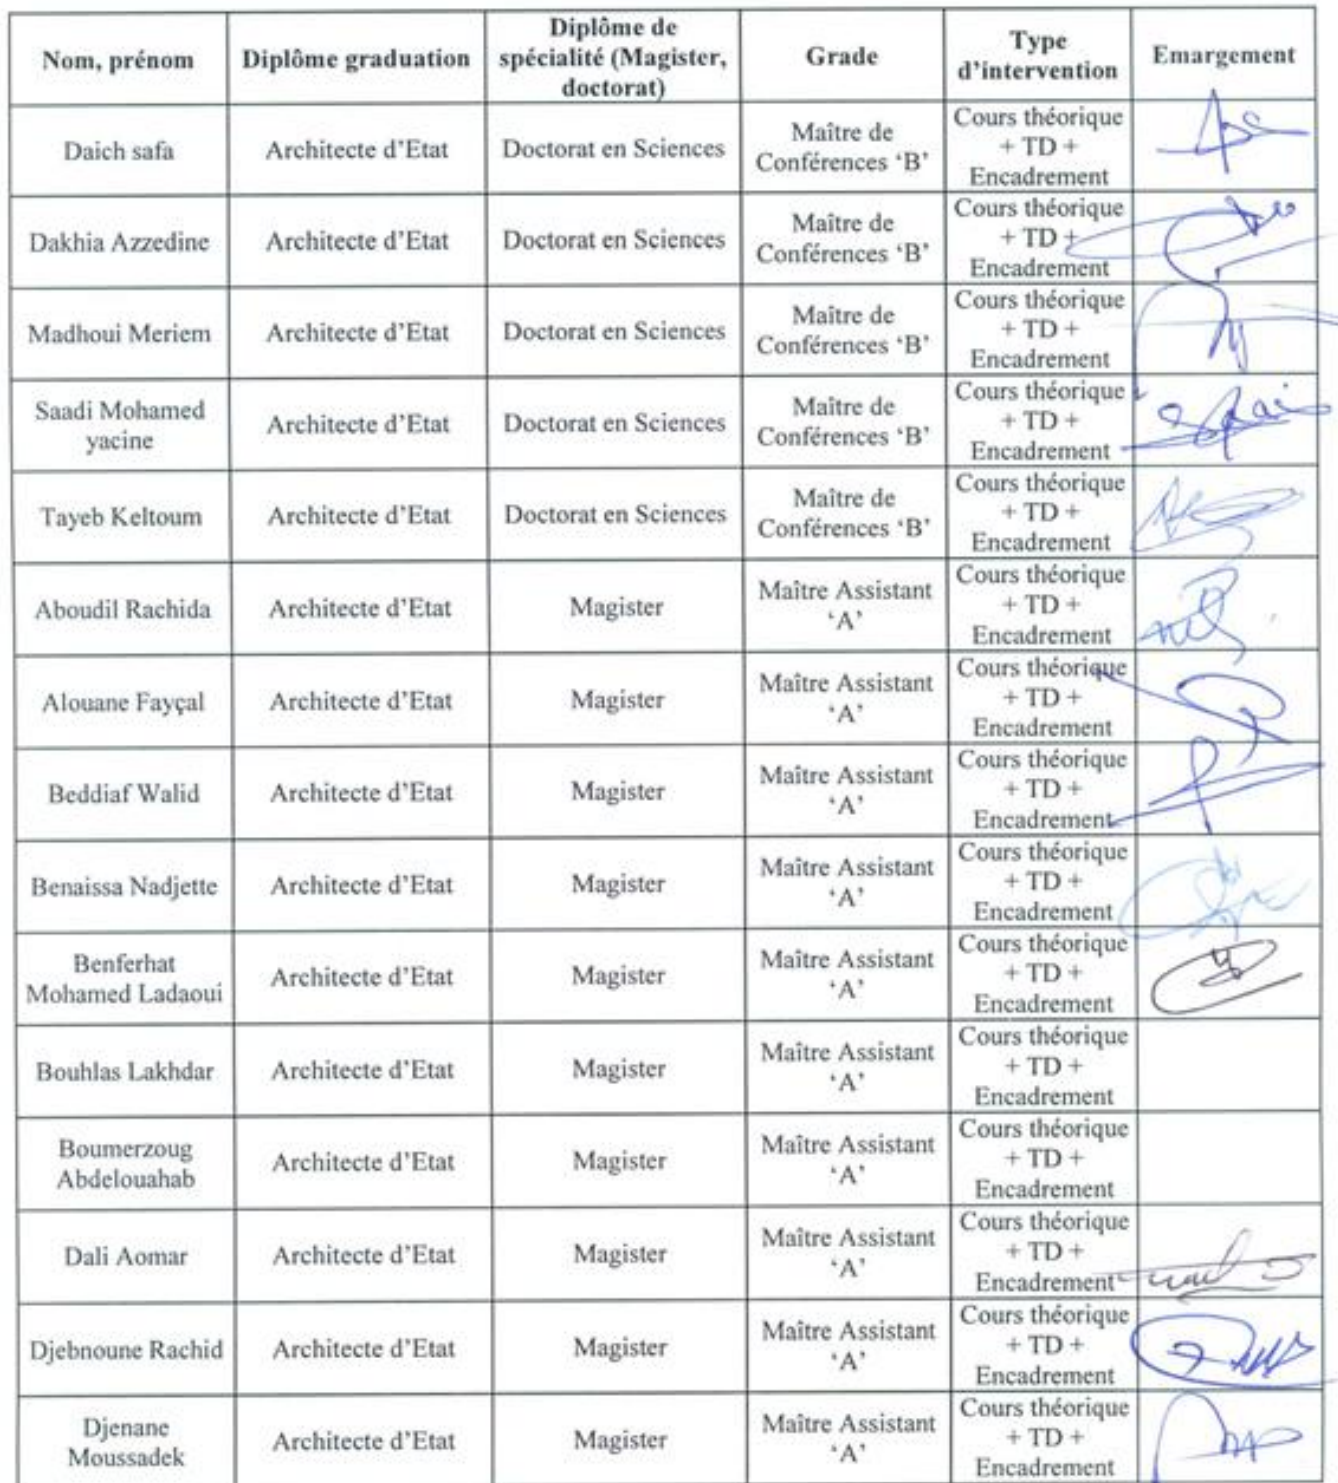 Nom, prénom
Diplôme graduation
Diplôme de
spécialité (Magister,
doctorat)
Grade
Type
d'intervention
Emargement
Daich safa
Architecte d'Etat
Doctorat en Sciences
Maître de
Conférences 'B'
Cours théorique
+ TD +
Encadrement
Dakhia Azzedine
Architecte d'Etat
Doctorat en Sciences
Maître de
Conférences 'B'
Cours théorique
+ TD +
Encadrement
Madhoui Meriem
Architecte d'Etat
Doctorat en Sciences
Maître de
Conférences 'B'
Cours théorique
+ TD +
Encadrement
Saadi Mohamed
yacine
Architecte d'Etat
Doctorat en Sciences
Maître de
Conférences 'B'
Cours théorique
+ TD +
Encadrement
Tayeb Keltoum
Architecte d'Etat
Doctorat en Sciences
Maître de
Conférences 'B'
Cours théorique
+ TD +
Encadrement
Aboudil Rachida
Architecte d'Etat
Magister
Maître Assistant
'A'
Cours théorique
+ TD +
Encadrement
Alouane Fayçal
Architecte d'Etat
Magister
Maître Assistant
'A'
Cours théorique
+ TD +
Encadrement
Beddiaf Walid
Architecte d'Etat
Magister
Maître Assistant
'A'
Cours théorique
+ TD +
Encadrement
Benaissa Nadjette
Architecte d'Etat
Magister
Maître Assistant
'A'
Cours théorique
+ TD +
Encadrement
Benferhat
Mohamed Ladaoui
Architecte d'Etat
Magister
Maître Assistant
'A'
Cours théorique
+ TD +
Encadrement
Bouhlas Lakhdar
Architecte d'Etat
Magister
Maître Assistant
'A'
Cours théorique
+ TD +
Encadrement
Boumerzoug
Abdelouahab
Architecte d'Etat
Magister
Maître Assistant
'A'
Cours théorique
+ TD +
Encadrement
Dali Aomar
Architecte d'Etat
Magister
Maître Assistant
'A'
Cours théorique
+ TD +
Encadrement
Djebnoune Rachid
Architecte d'Etat
Magister
Maître Assistant
'A'
Cours théorique
+ TD +
Encadrement
Djenane
Moussadek
Architecte d'Etat
Magister
Maître Assistant
'A'
Cours théorique
+ TD +
Encadrement